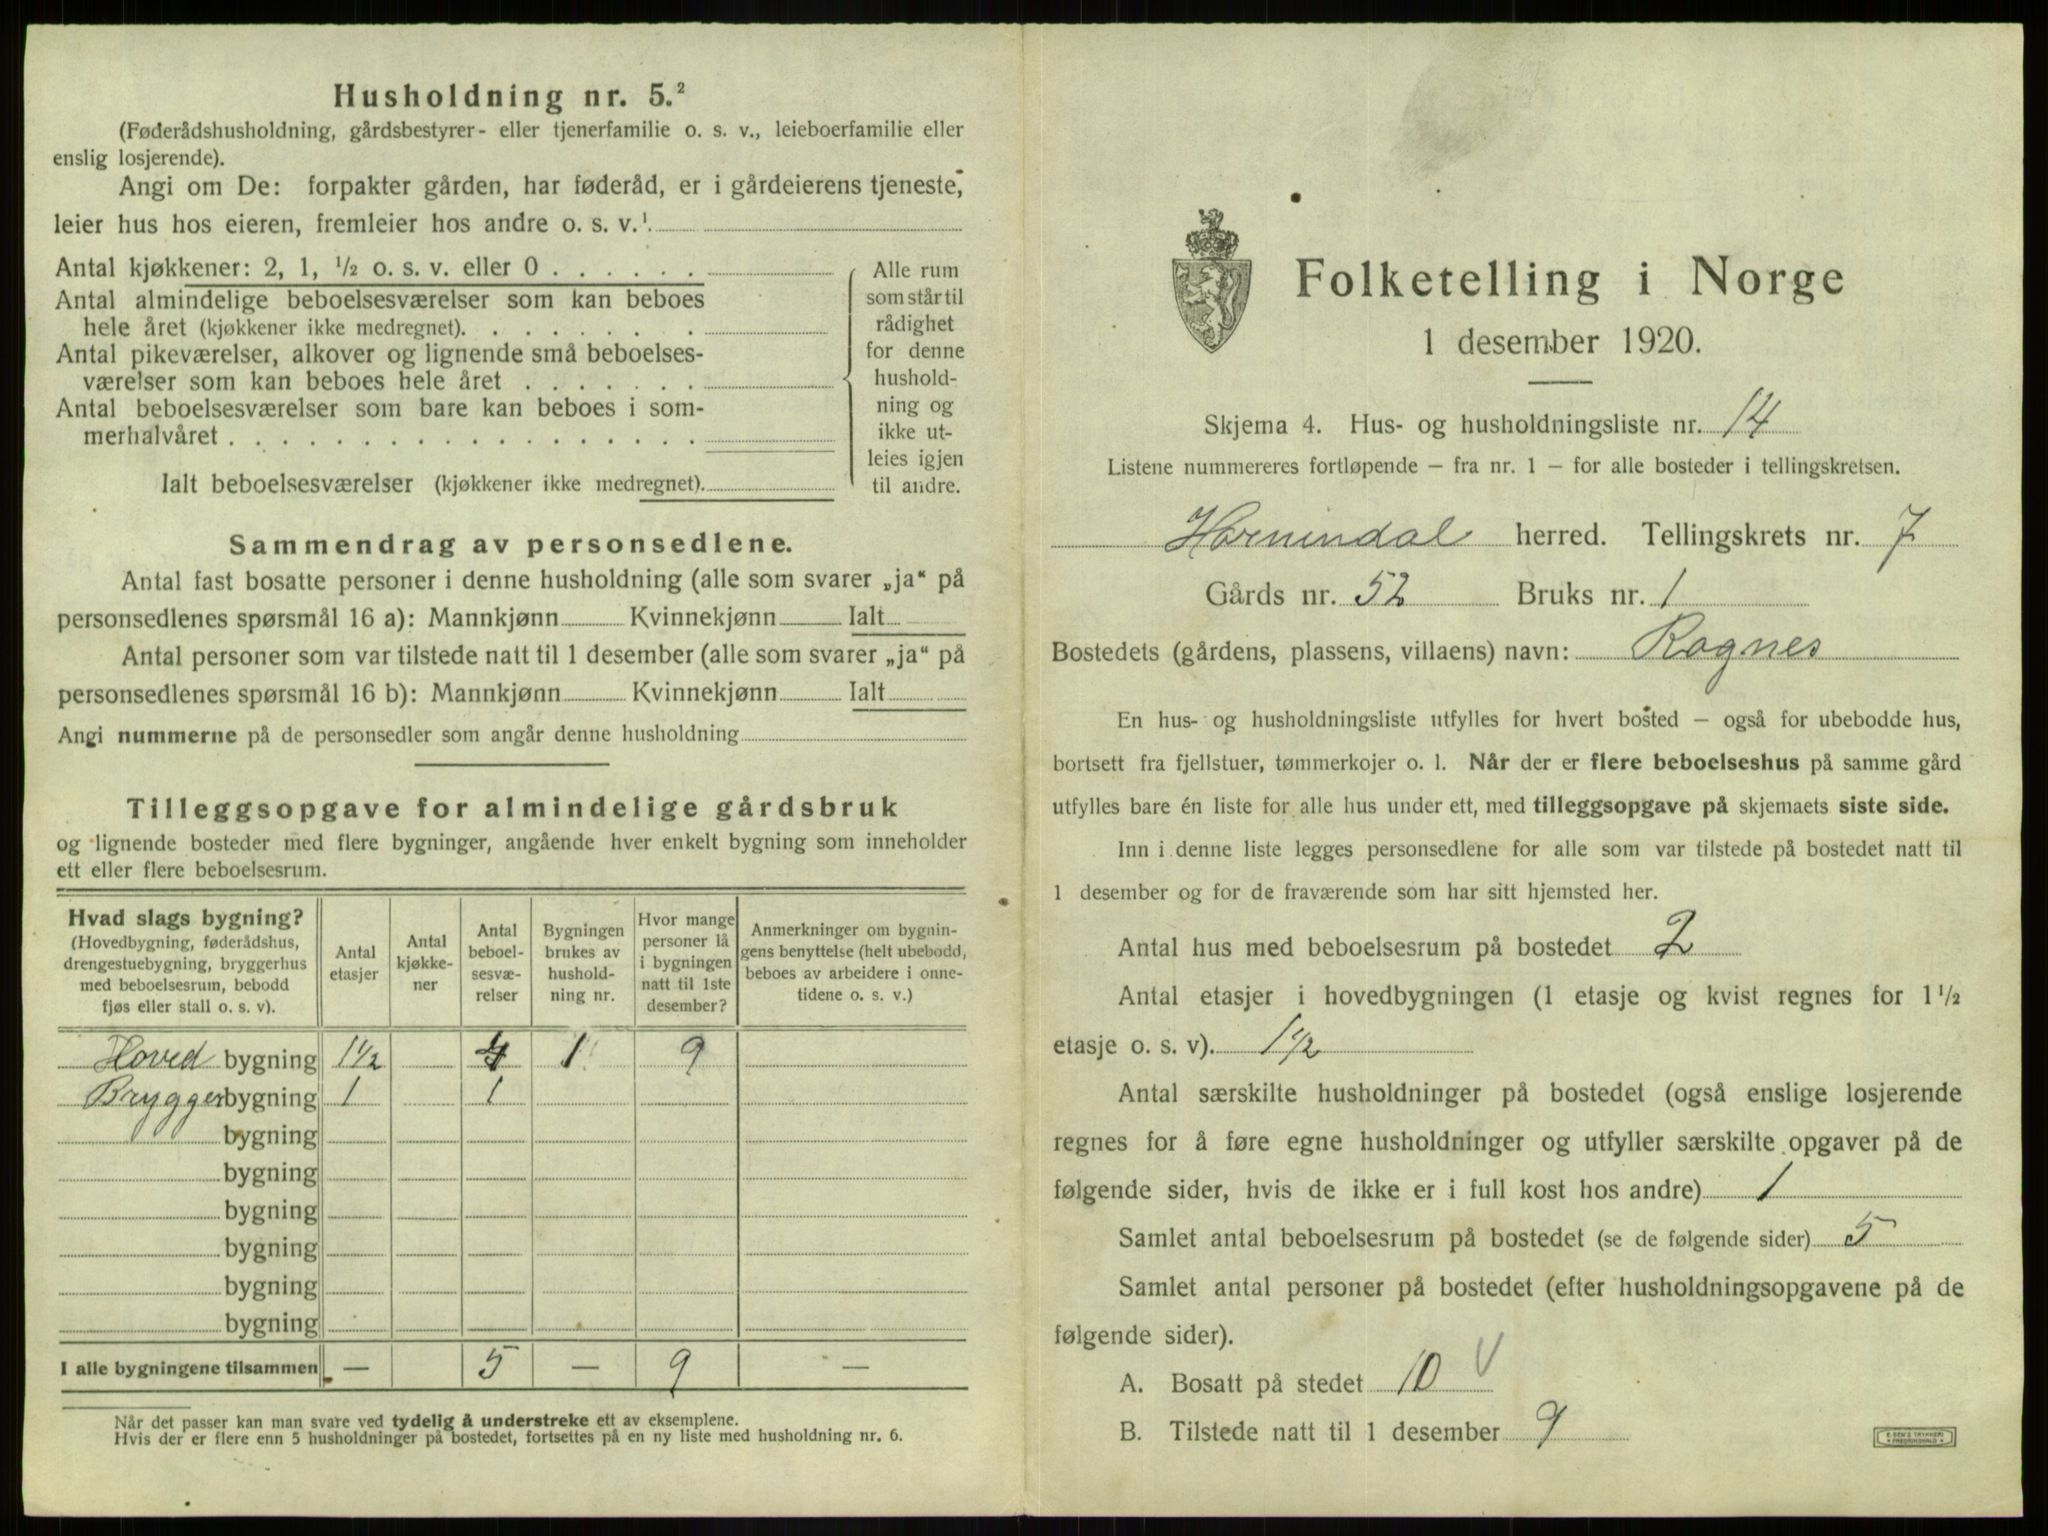 Husholdning nr. 5.²
(Føderådshusholdning, gårdsbestyrer- eller tjenerfamilie o. s. v., leieboerfamilie eller
enslig losjerende).
Angi om De: forpakter gården, har føderåd, er i gårdeierens tjeneste,
leier hus hos eieren, fremleier hos andre o. s. v.¹
Antal kjøkkener: 2, 1, ½ o. s. v. eller 0 . . . . . .
Antal almindelige beboelsesværelser som kan beboes
hele året (kjøkkener ikke medregnet). . . . . . . .
Antal pikeværelser, alkover og lignende små beboelses-
værelser som kan beboes hele året . . . . . . .
Antal beboelsesværelser som bare kan beboes i som-
merhalvåret . . . . . . . . . . . . . . . . . .
Ialt beboelsesværelser (kjøkkener ikke medregnet).
Alle rum
som står til
rådighet
for denne
hushold-
ning og
ikke ut-
leies igjen
til andre.
Sammendrag av personsedlene.
Antal fast bosatte personer i denne husholdning (alle som svarer „ja“ på
personsedlenes spørsmål 16 a): Mannkjønn Kvinnekjønn Ialt
Antal personer som var tilstede natt til 1 desember (alle som svarer „ja“ på
personsedlenes spørsmål 16 b): Mannkjønn Kvinnekjønn Ialt
Angi nummerne på de personsedler som angår denne husholdning
Tilleggsopgave for almindelige gårdsbruk
og lignende bosteder med flere bygninger, angående hver enkelt bygning som inneholder
ett eller flere beboelsesrum.
Hvad slags bygning?
(Hovedbygning, føderådshus,
drengestuebygning, bryggerhus
med beboelsesrum, bebodd
fjøs eller stall o. s. v).
Antal
etasjer
Antal
kjøkke-
ner
Antal
beboel-
sesvæ-
relser
Bygningen
brukes av
hushold-
ning nr.
Hvor mange
personer lå
i bygningen
natt til 1ste
desember?
Anmerkninger om bygnin-
gens benyttelse (helt ubebodd,
beboes av arbeidere i onne-
tidene o. s. v.)
Hoved bygning 1½ 4 1 9
Brygger bygning 1 1
bygning
bygning
bygning
bygning
bygning
bygning
I alle bygningene tilsammen — 5 — 9 —
Når det passer kan man svare ved tydelig å understreke ett av eksemplene.
Hvis der er flere enn 5 husholdninger på bostedet, fortsettes på en ny liste med husholdning nr. 6.
Folketelling i Norge
1 desember 1920.
Skjema 4. Hus- og husholdningsliste nr. 14
Listene nummereres fortløpende – fra nr. 1 – for alle bosteder i tellingskretsen.
Hornindal herred. Tellingskrets nr. 7
Gårds nr. 52 Bruks nr. 1
Bostedets (gårdens, plassens, villaens) navn: Rognes
En hus- og husholdningsliste utfylles for hvert bosted – også for ubebodde hus,
bortsett fra fjellstuer, tømmerkojer o. l. Når der er flere beboelseshus på samme gård
utfylles bare én liste for alle hus under ett, med tilleggsopgave på skjemaets siste side.
Inn i denne liste legges personsedlene for alle som var tilstede på bostedet natt til
1 desember og for de fraværende som har sitt hjemsted her.
Antal hus med beboelsesrum på bostedet 2
Antal etasjer i hovedbygningen (1 etasje og kvist regnes for 1 ½
etasje o. s. v). 1½
Antal særskilte husholdninger på bostedet (også enslige losjerende
regnes for å føre egne husholdninger og utfyller særskilte opgaver på de
følgende sider, hvis de ikke er i full kost hos andre) 1
Samlet antal beboelsesrum på bostedet (se de følgende sider) 5
Samlet antal personer på bostedet (efter husholdningsopgavene på de
følgende sider).
A. Bosatt på stedet 10 V
B. Tilstede natt til 1 desember 9